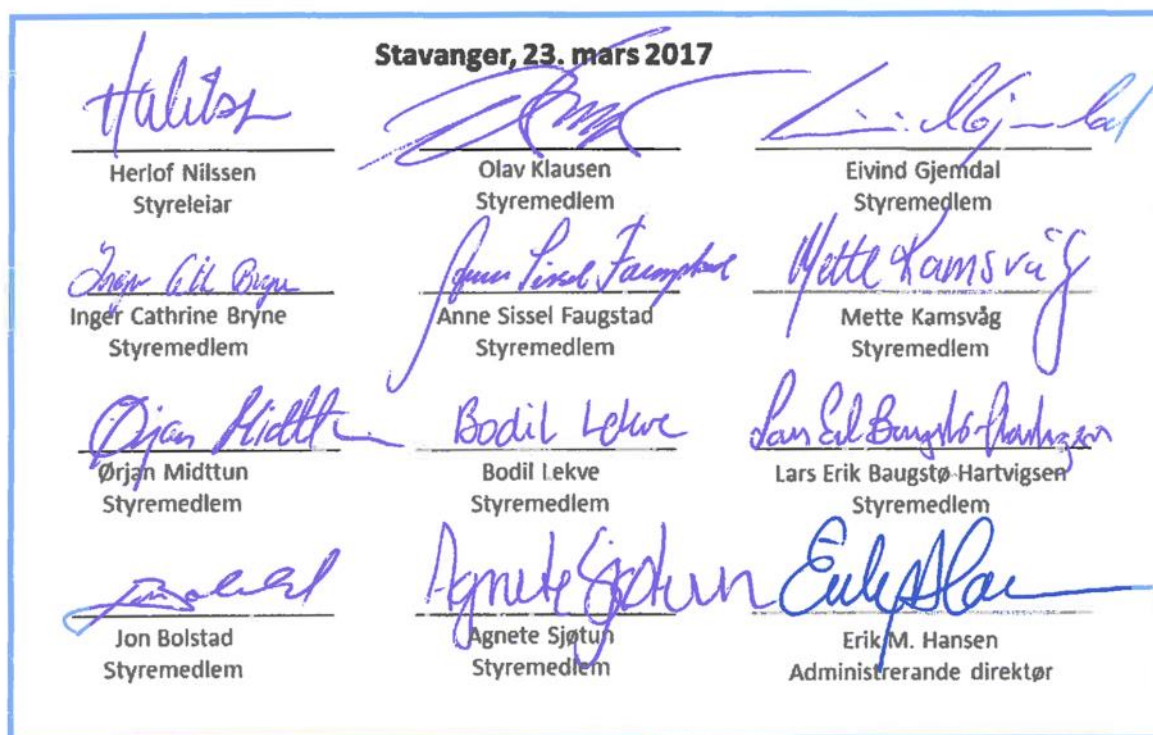 Stavanger, 23. mars 2017
Herlof Nilssen
Styreleiar
Olav Klausen
Styremedlem
Eivind Gjemdal
Styremedlem
Inger Cathrine Bryne
Styremedlem
Anne Sissel Faugstad
Styremedlem
Mette Kamsvåg
Mette Kamsvåg
Styremedlem
Ørjan Midttun
Styremedlem
Bodil Lekve
Bodil Lekve
Styremedlem
Lars Erik Baugstø Hartvigsen
Styremedlem
Jon Bolstad
Styremedlem
Agnete Sjøtun
Agnete Sjøtun
Styremedlem
Erik M. Hansen
Administrerande direktør